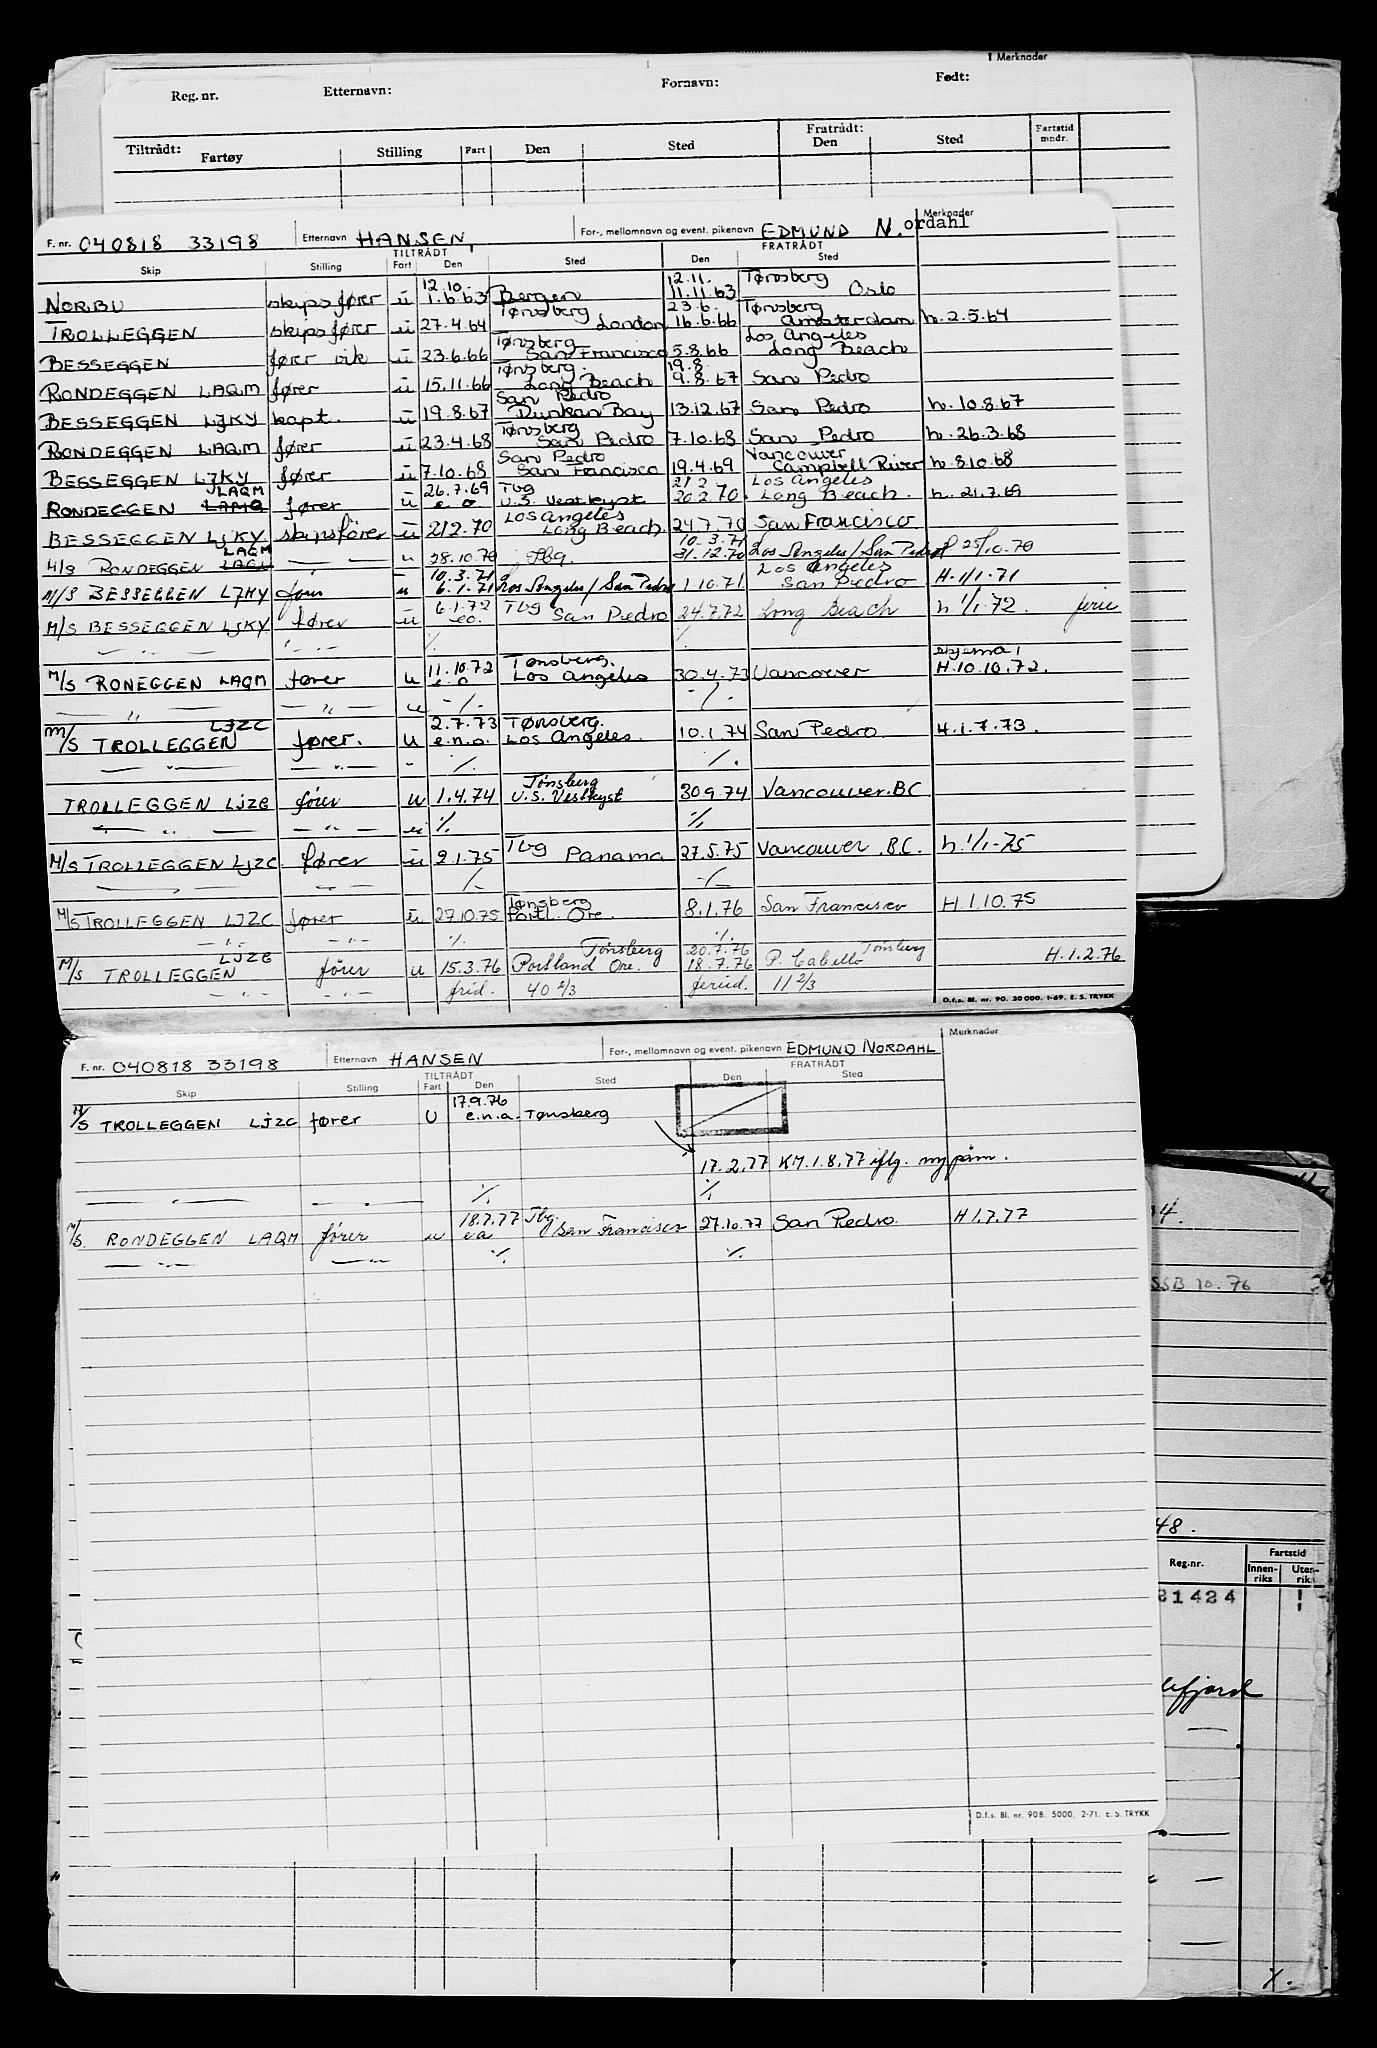 Merknader
Reg. nr. Etternavn: Fornavn: Født:
Tiltrådt: Fartøy Stilling Fart Den Sted Fratrådt: Den Sted Fartstid mndr.
F. nr. 040818 33198 Etternavn HANSEN, For-, mellomnavn og event. pikenavn EDMUND N.ordahl Merknader
TILTRÅDT FRATRÅDT
Skip Stilling Fart Den Sted Den Sted
12.10. 12.11. Tønsberg
NORBU skipsfører u 1.6.63 Bergen 11.11.63 Oslo
Tønsberg 23.6. Tønsberg
TROLLEGGEN skipsfører u 27.4.64 London 16.6.66 Amsterdam h. 2.5.64
Tønsberg Los Angeles
BESSEGGEN fører vik u 23.6.66 San Francisco 5.8.66 Long Beach
Tønsberg. 19.8
RONDEGGEN LAQM fører u 15.11.66 Long Beach 9.8.67 San Pedro
San Pedro
BESSEGGEN LJKY kapt. u 19.8.67 Dunkan Bay 13.12.67 San Pedro h. 10.8.67
Tønsberg
RONDEGGEN LAQM fører u 23.4.68 San Pedro 7.10.68 San Pedro h. 26.3.68
San Pedro Vancouver
BESSEGGEN LJKY fører u 7.10.68 San Francisco 19.4.69 Campbell River h. 8.10.68
LAQM 26.7.69 Tbg 21 2 Los Angeles
RONDEGGEN LAMQ fører u e.o. U.S. Vestkyst 20.2.70. Long Beach. h. 21.7.69
Los Angeles
BESSEGGEN LJKY skipsfører u 21 2.70 Long Beach. 24.7.70 San Francisco
LAQM 10.3.71
M/S RONDEGGEN — " — u 28.10.70 Tbg. 31.12.70 Los Angeles/San Pedro 25/10.70
10.3.71 Los Angeles
M/S BESSEGGEN LJKY fører u 6.1.71 Los Angeles/San Pedro 1.10.71 San Pedro H. 1/1.71
6.1.72 Tbg
M/S BESSEGGEN LJKY fører u eo. San Pedro 24.7.72 Long Beach h 1/1.72. ferie
— " — — " — ./. ./.
11.10.72 Tønsberg.
M/S RONEGGEN LAQM fører u e.o Los Angeles 30.4.73 Vancouver H. 10.10.72.
— " — — " — u -/- -/-
LJZC 2.7.73 Tønsberg.
M/S TROLLEGGEN fører. u e.n.o. Los Angeles. 10.1.74 San Pedro H. 1.7.73.
— " — — " — " ./. ./.
Tønsberg
TROLLEGGEN LJZC fører u 1.4.74 U.S. Vestkyst 30 9.74 Vancouver.BC
— " — — " — u ./. ./.
M/S TROLLEGGEN LJZC. fører u 2.1.75 Tbg Panama 27.5.75 Vancouver .B.C. h. 1/1-75
— " — — " — -/- -/-
Tønsberg
M/S TROLLEGGEN LJZC fører u 27.10.75 Portl. Ore. 8.1.76 San Francisco H. 1.10.75
— " — — " — ./. ./.
LJZC Tønsberg 20.7.76 Tønsberg
M/S TROLLEGGEN fører u 15.3.76 Portland Ore. 18.7.76 P. Cabello H. 1.2.76
— " — — " — frid. 40 2/3 feried. 11 2/3
D.f.s. Bl. nr. 90. 30 000. 1-69. E. S. TRYKK
F. nr. 040818 33198 Etternavn HANSEN For-, mellomnavn og event. pikenavn EDMUND NORDAHL Merknader
TILTRÅDT FRATRÅDT
Skip Stilling Fart Den Sted Den Sted
17.9.76
M/S TROLLEGGEN LJZC fører U e.n.a. Tønsberg
17.2.77 KM. 1.8.77 iflg. ny påm.
— — ./. ./.
18.7.77 Tbg.
M/S. RONDEGGEN LAQM fører u ea San Francisco 27.10.77 San Pedro. H 1.7.77
— " — — " — ./. ./.
D.f.s. Bl. nr. 90B. 5000. 2-71. E. S. TRYKK
4.
SSB 10.76
48.
Reg.nr. Fartstid
Innen-riks Uten-riks
81424
X.